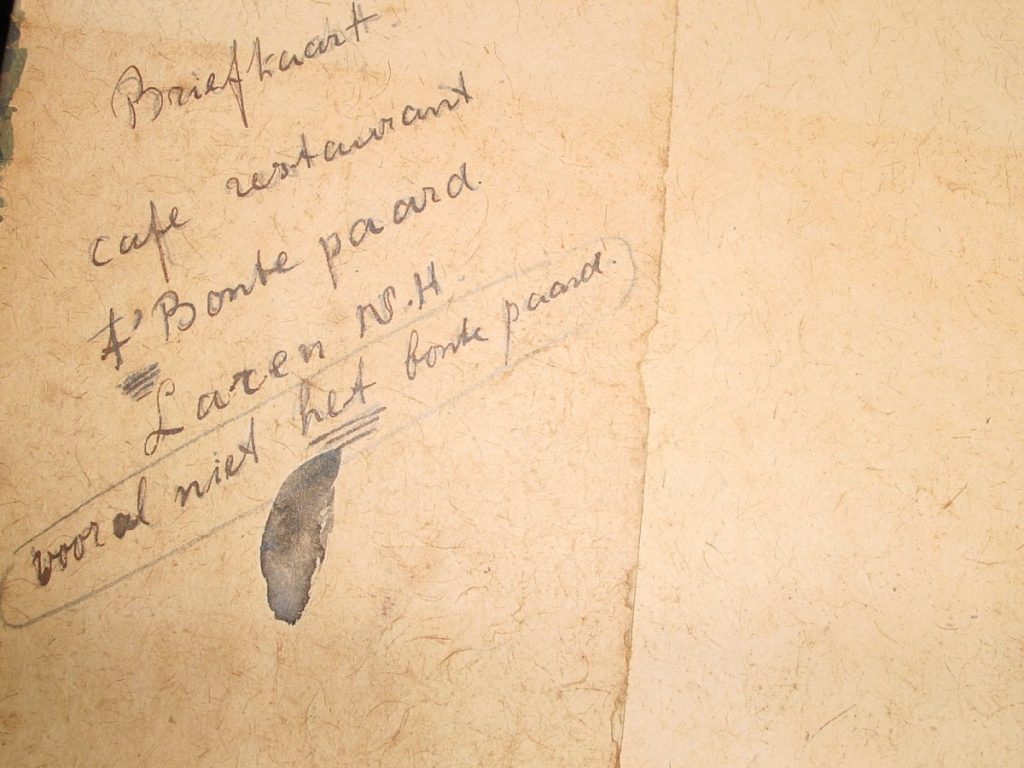 Briefkaart.
cafe restaurant
t' Bonte paard.
Laren N.H.
vooral niet het bonte paard.